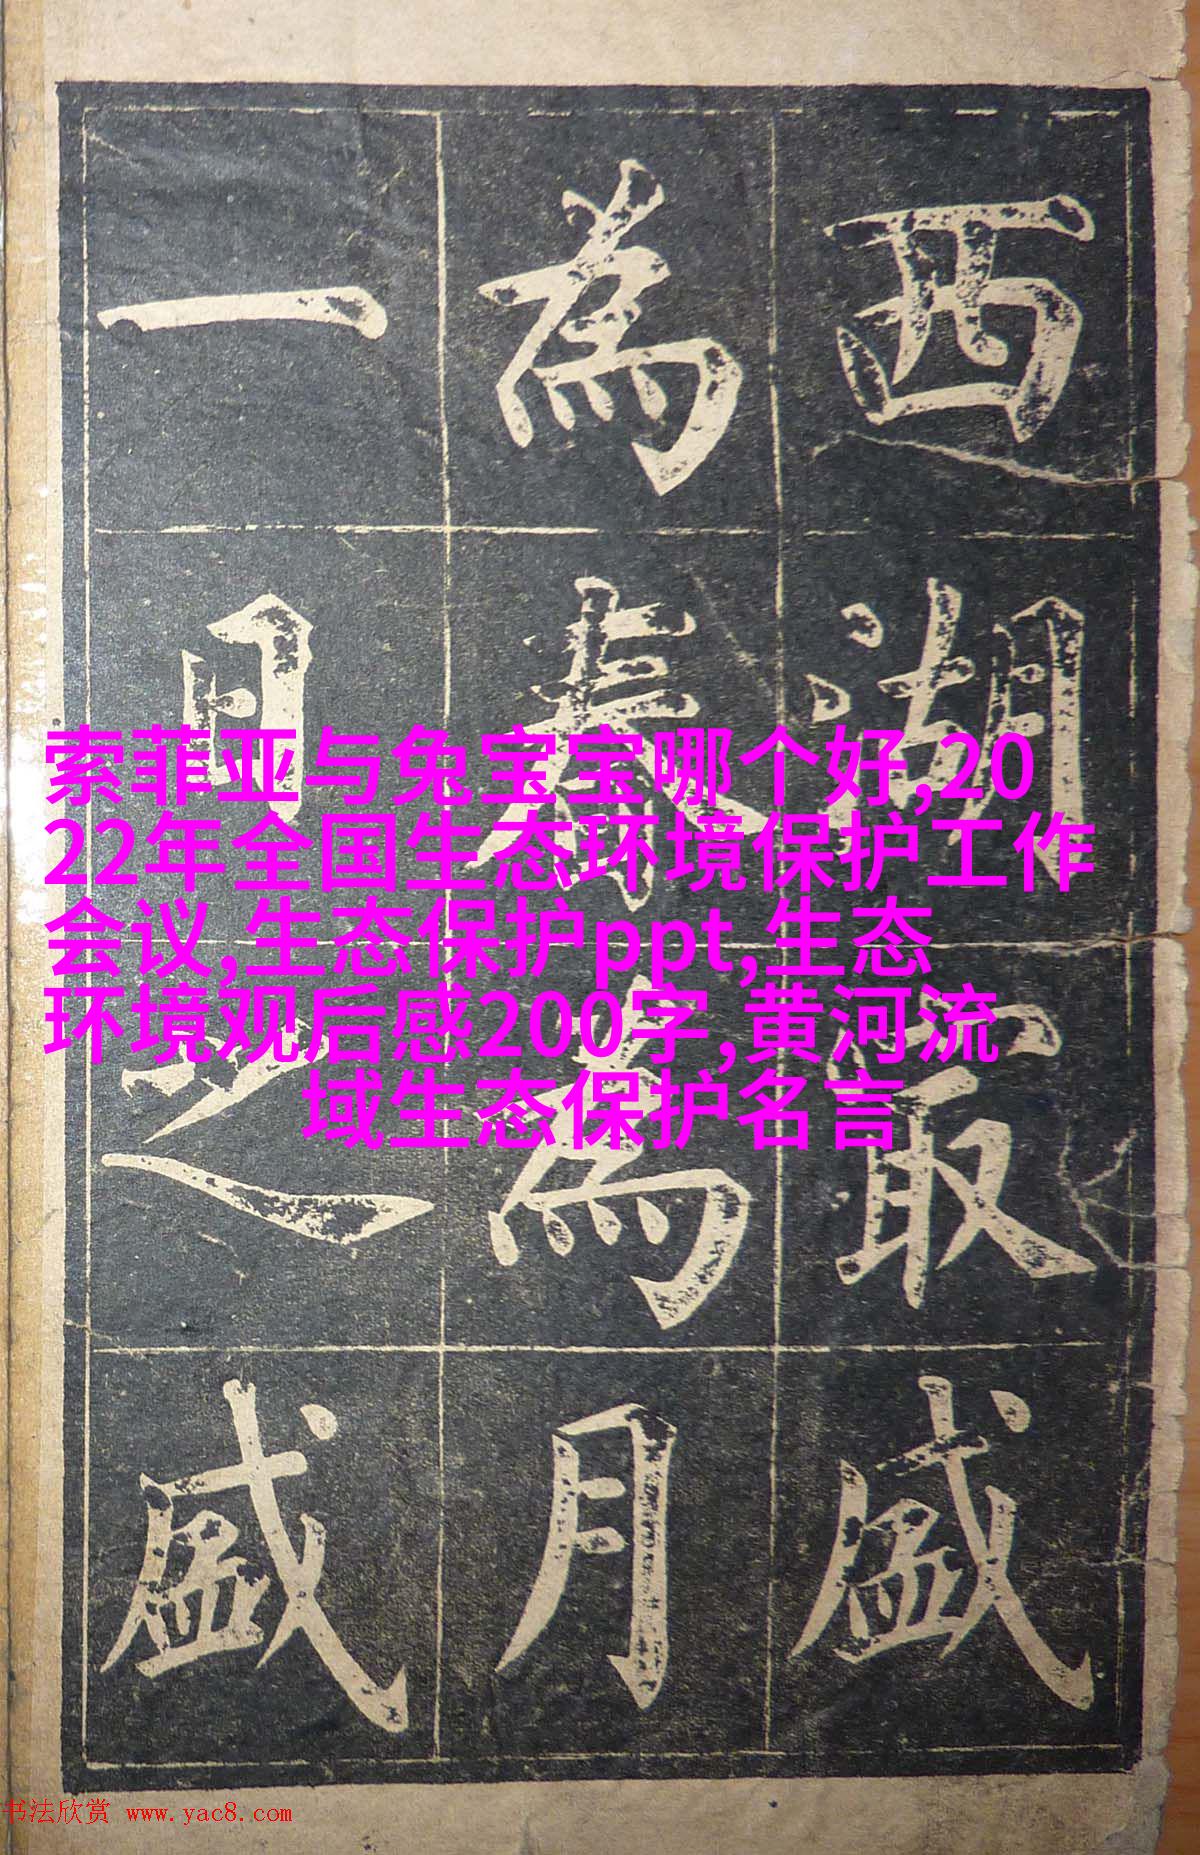 西湖最盛
為春為月
一日之盛
索菲亚与兔宝宝哪个好,20
22年全国生态环境保护工作
会议,生态保护ppt,生态
环境观后感200字,黄河流
域生态保护名言
书法欣赏 www.yac8.com